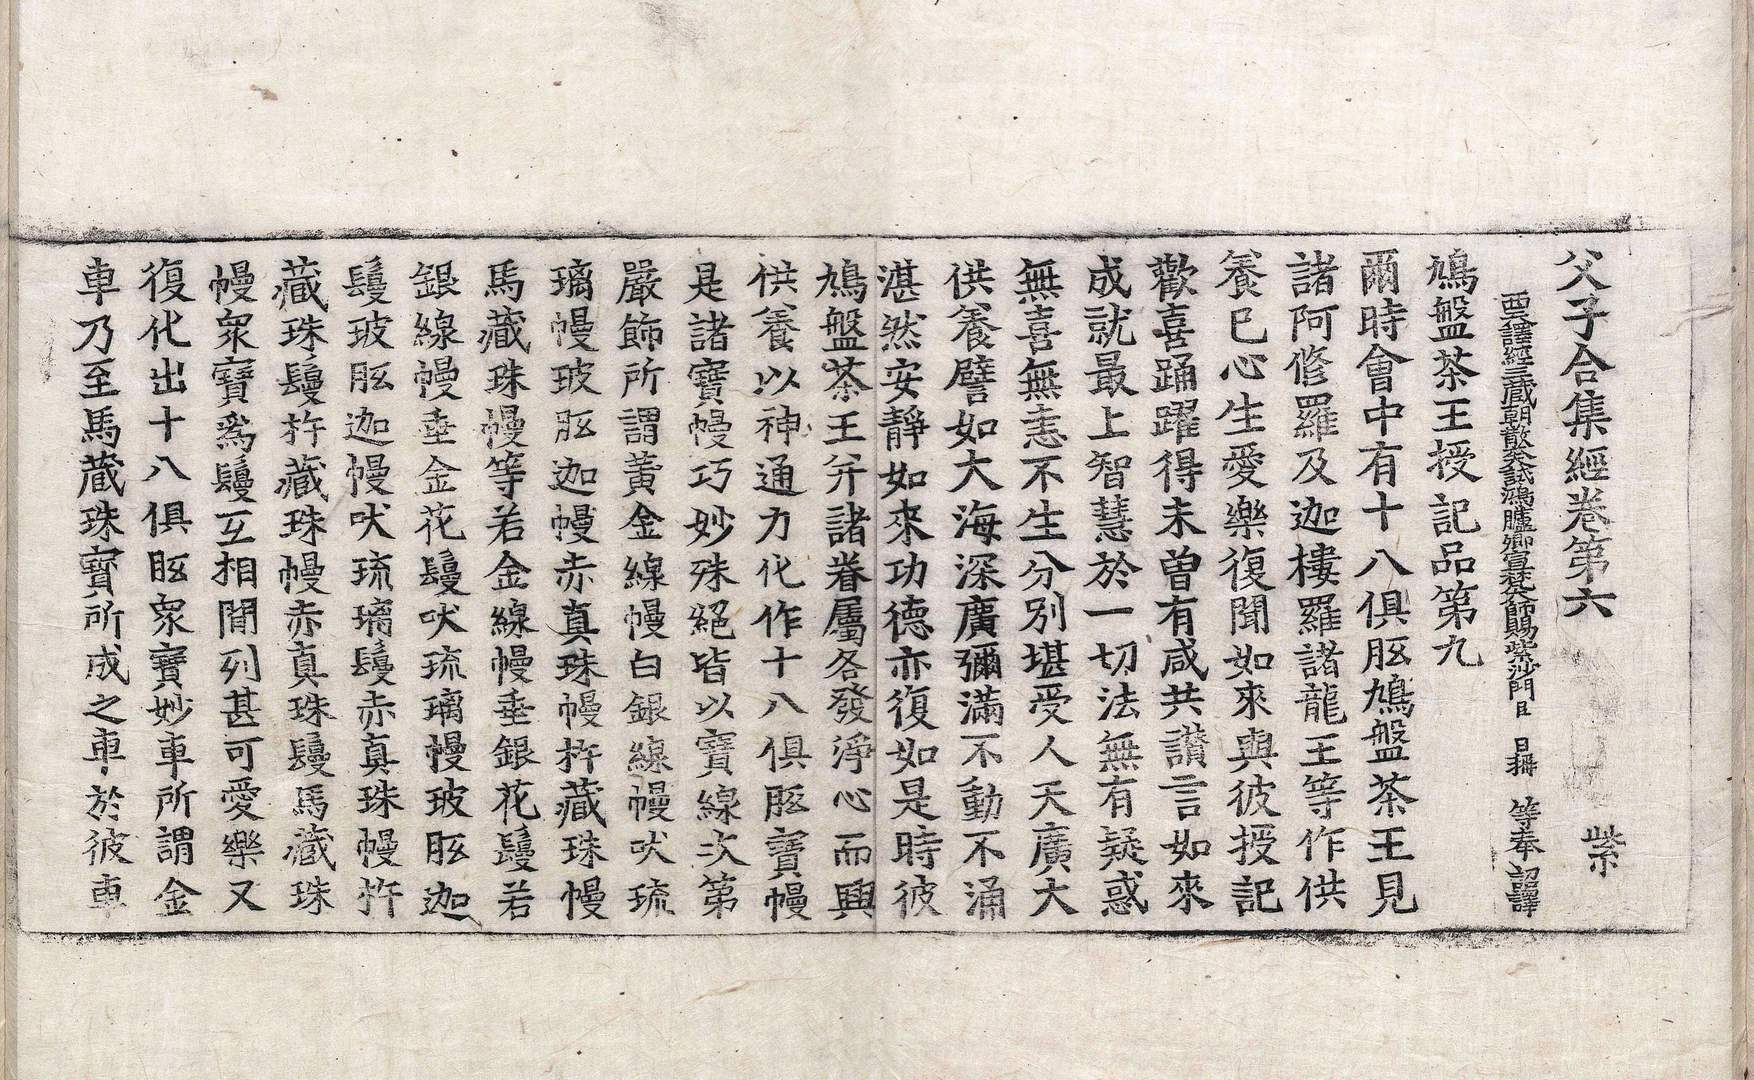 父子合集經卷第六 紫
西天譯經三藏朝散大夫試鴻臚卿宣梵大師賜紫沙門臣 日稱 等奉 詔譯
鳩盤茶王授記品第九
爾時會中有十八俱胝鳩盤茶王見
諸阿修羅及迦樓羅諸龍王等作供
養已心生愛樂復聞如來與彼授記
歡喜踊躍得未曾有咸共讚言如來
成就最上智慧於一切法無有疑惑
無喜無恚不生分別堪受人天廣大
供養譬如大海深廣彌滿不動不涌
湛然安靜如來功德亦復如是時彼
鳩盤茶王并諸眷屬各發淨心而興
供養以神通力化作十八俱胝寶幔
是諸寶幔巧妙殊絕皆以寶線次第
嚴飾所謂黃金線幔白銀線幔吠琉
璃幔玻胝迦幔赤真珠幔杵藏珠幔
馬藏珠幔等若金線幔垂銀花鬘若
銀線幔垂金花鬘吠琉璃幔玻胝迦
鬘玻胝迦幔吠琉璃鬘赤真珠幔杵
藏珠鬘杵藏珠幔赤真珠鬘馬藏珠
幔眾寶為鬘互相間列甚可愛樂又
復化出十八俱胝眾寶妙車所謂金
車乃至馬藏珠寶所成之車於彼車